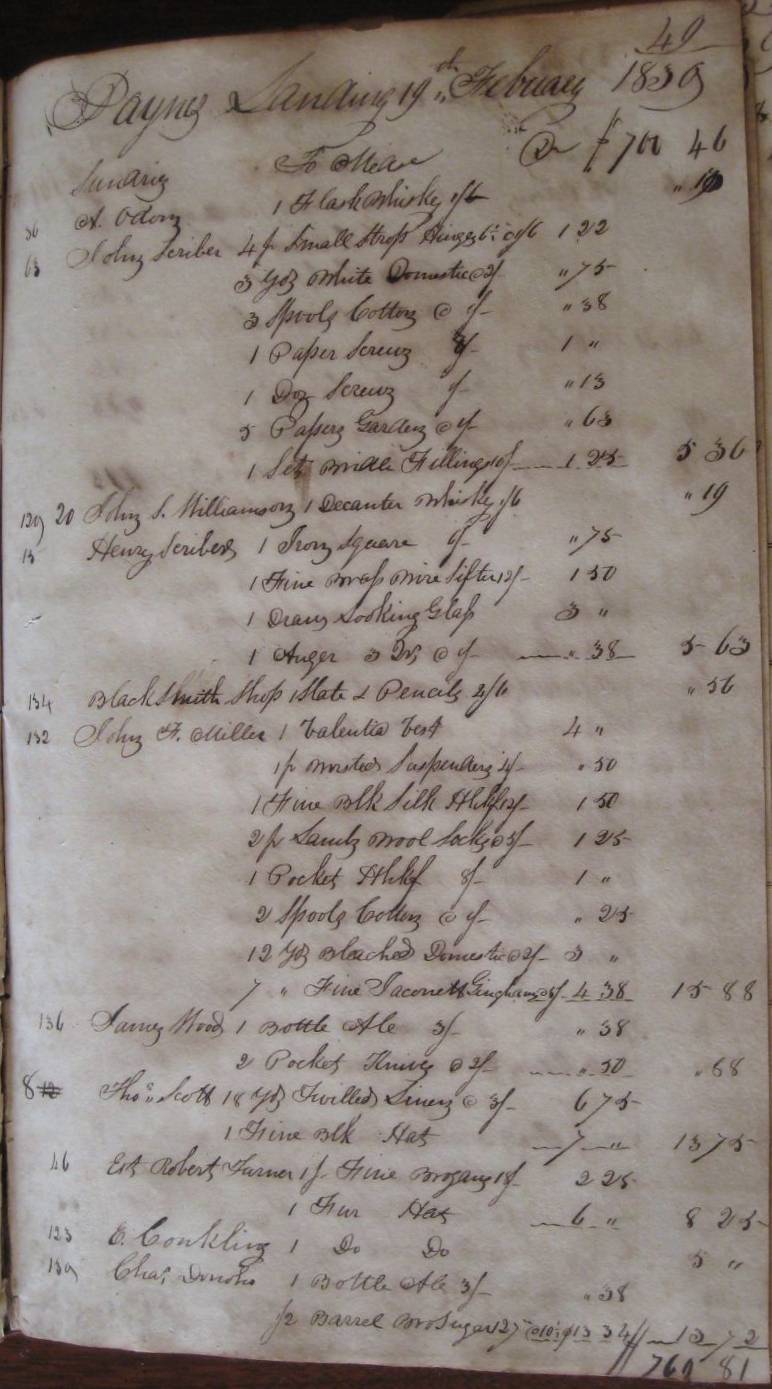 49
Paynes Landing 19th February 1839
Sundries To Mdse Dr $700 46
36 A. Odom 1 Flask Whisky 1/6 " 19
63 John Scriber 4 pr Small Strap Hinges 1 22
3 Yds White Domestic @ 2/- " 75
3 Spools Cotton @ 1/- " 38
1 Paper Screws 8/- 1 "
1 Doz Screws 1/- " 13
5 Papers Garden @ 1/- " 63
1 Set Bridle Fillings 10/- 1 25 5 36
129 20 John S. Williamson 1 Decanter Whisky 1/6 " 19
15 Henry Scriber 1 Iron Square 6/- " 75
1 Fine Brass Wire Sifter 12/- 1 50
1 Looking Glass 3 "
1 Auger 3 Qrs @ 1/- " 38 5 63
134 Black Smith Shop 1 Slate & Pencils 4/6 " 56
132 John F. Miller 1 Valentia Vest 4 "
1 pr Worsted Suspenders 4/- " 50
1 Fine Blk Silk Hhkf 12/- 1 50
2 pr Lambs Wool Socks @ 5/- 1 25
1 Pocket Hhkf 8/- 1 "
2 Spools Cotton @ 1/- " 25
12 Yds Bleached Domestic @ 2/- 3 "
7 " Fine Jaconett Gingham @ 5/- 4 38 15 88
136 James Wood 1 Bottle Ale 3/- " 38
2 Pocket Knives @ 2/- " 50 " 88
8 Thos. Scott 18 Yds Twilled Linen @ 3/- 6 75
1 Fine Blk Hat 7 " 13 75
46 Est Robert Turner 1 pr Fine Brogans 18/- 2 25
1 Fur Hat 6 " 8 25
123 E. Conkling 1 Do Do 5 "
139 Chas. Donoho 1 Bottle Ale 3/- " 38
1/2 Barrel Bro Sugar 127 @ 10 1/2 13 34 13 72
769 81